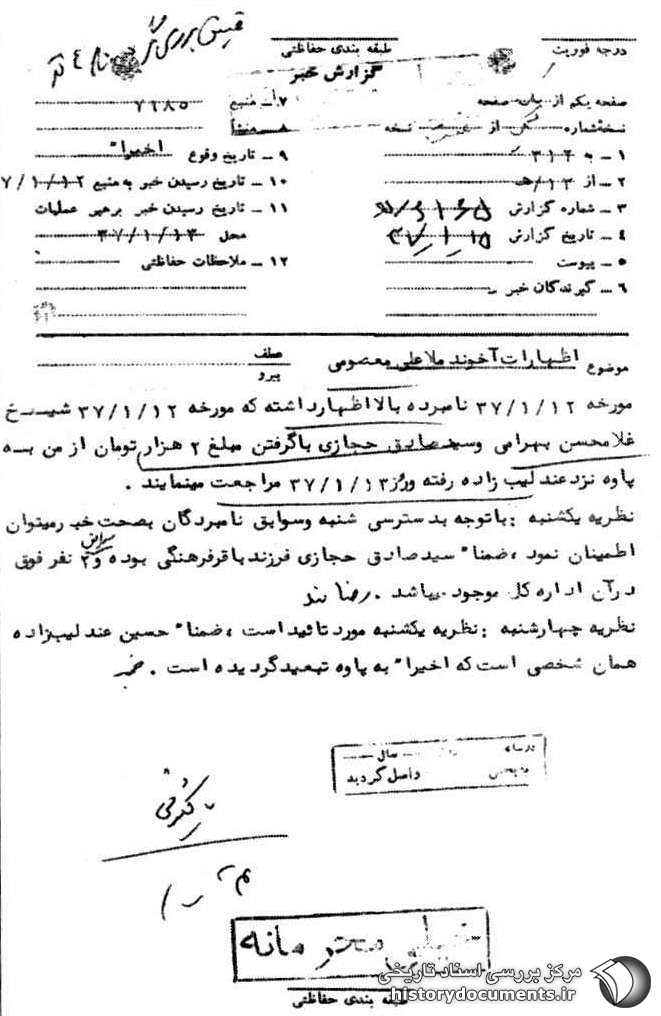 درجه فوریت
طبقه بندی حفاظتی
گزارش خبر
صفحه یکم از یک صفحه
نسخه شماره از نسخه
۱ ـ به ۳۱۲
۲ ـ از ۱۳/هـ
۳ ـ شماره گزارش
۴ ـ تاریخ گزارش ۳۷/۱/۱۵
۵ ـ پیوست
۶ ـ گیرندگان خبر ـ
۷ ـ منبع ۷۱۸۵
۸ ـ منشأ
۹ ـ تاریخ وقوع اخیرا"
۱۰ ـ تاریخ رسیدن خبر به منبع ۳۷/۱/۱۲
۱۱ ـ تاریخ رسیدن خبر برهبر عملیات
محل ۳۷/۱/۱۳
۱۲ ـ ملاحظات حفاظتی
موضوع اظهارات آخوند ملاعلی معصومی
عطف
پیرو
مورخه ۳۷/۱/۱۲ نامبرده بالا اظهارداشته که مورخه ۳۷/۱/۱۲ شیخ
غلامحسن بهرامی وسیدصادق حجازی باگرفتن مبلغ ۲ هزارتومان از من به
پاوه نزدعندلیب زاده رفته وروز ۳۷/۱/۱۳ مراجعت مینمایند .
نظریه یکشنبه : باتوجه بدسترسی شنبه وسوابق نامبردگان بصحت خبرمیتوان
اطمینان نمود ، ضمنا" سیدصادق حجازی فرزندباقرفرهنگی بوده و سوابق ۲ نفر فوق
درآن اداره کل موجود میباشد . رضاوند
نظریه چهارشنبه : نظریه یکشنبه مورد تائیداست ، ضمنا" حسین عندلیب‌زاده
همان شخصی است که اخیرا" به پاوه تبعیدگردیده است .
سال
واصل گردید
خیلی محرمانه
طبقه بندی حفاظتی
مرکز بررسی اسناد تاریخی
historydocuments.ir